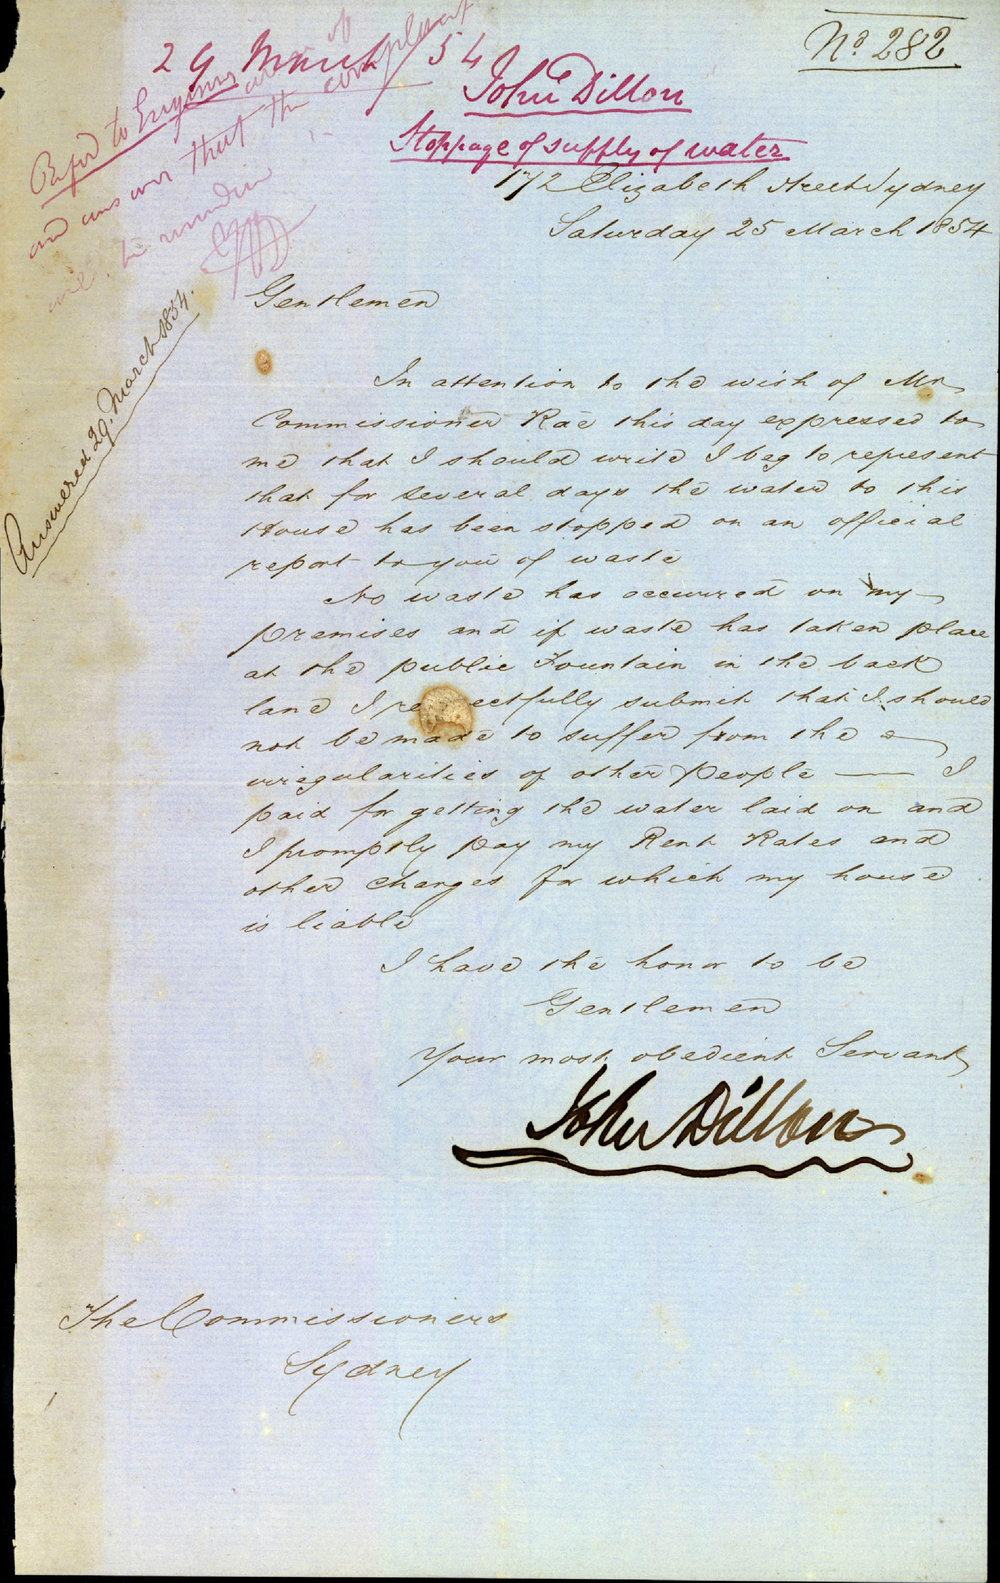 No 282
29 March / 54
John Dillon
Stoppage of supply of water
Refd to Engineer
and answer that the complaint
will be
Answered 29. March 1854.
172 Elizabeth Street Sydney
Saturday 25 March 1854
Gentlemen
In attention to the wish of Mr
Commissioner Rae this day expressed to
me that I should write I beg to represent
that for several days the water to this
House has been stopped on an official
report to you of waste
No waste has occurred on my
premises and if waste has taken place
at the public Fountain in the back
land I re ectfully submit that I should
not be made to suffer from the
irregularities of other People —— I
paid for getting the water laid on and
I promptly pay my Rent Rates and
other charges for which my house
is liable
I have the honor to be
Gentlemen
Your most obedient Servant
John Dillon
The Commissioners
Sydney